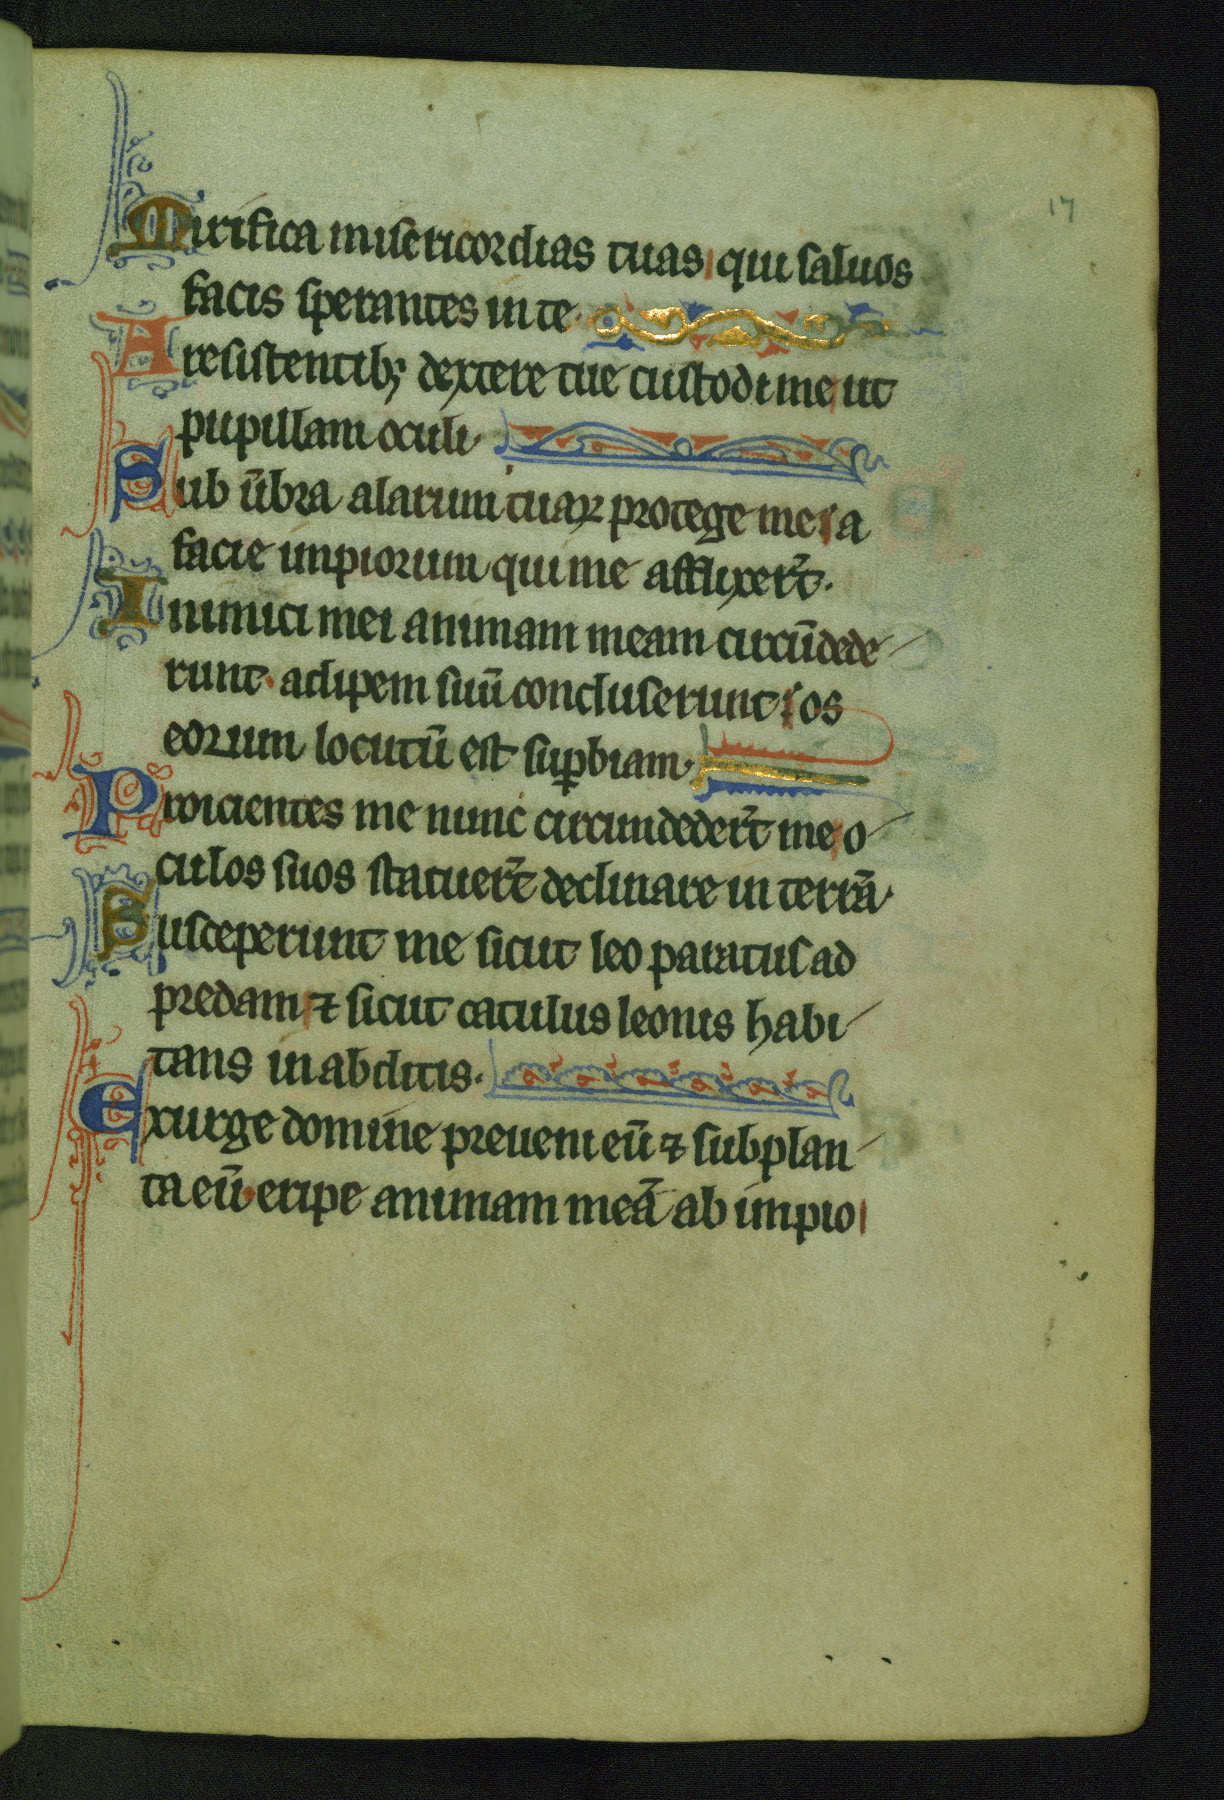 17
Mirifica misericordias tuas qui saluos
facis sperantes in te.
A resistentib; dextere tue custodi me ut
pupillam oculi
Sub ūbra alarum tuaꝝ protege me ⁊ a
facie impiorum qui me afflixer̄t.
Inimici mei animam meam circūdede
runt. adipem suū concluserunt ⁊ os
eorum locutū est suꝑbiam.
Proicientes me nunc circumdeder̄t me o
culos suos statuer̄t declinare in terrā.
Susceperunt me sicut leo paratus ad
predam ⁊ sicut catulus leonis habi
tans in abditis.
Exurge domine preueni eū ⁊ subplan
ta eū eripe animam meā ab impio